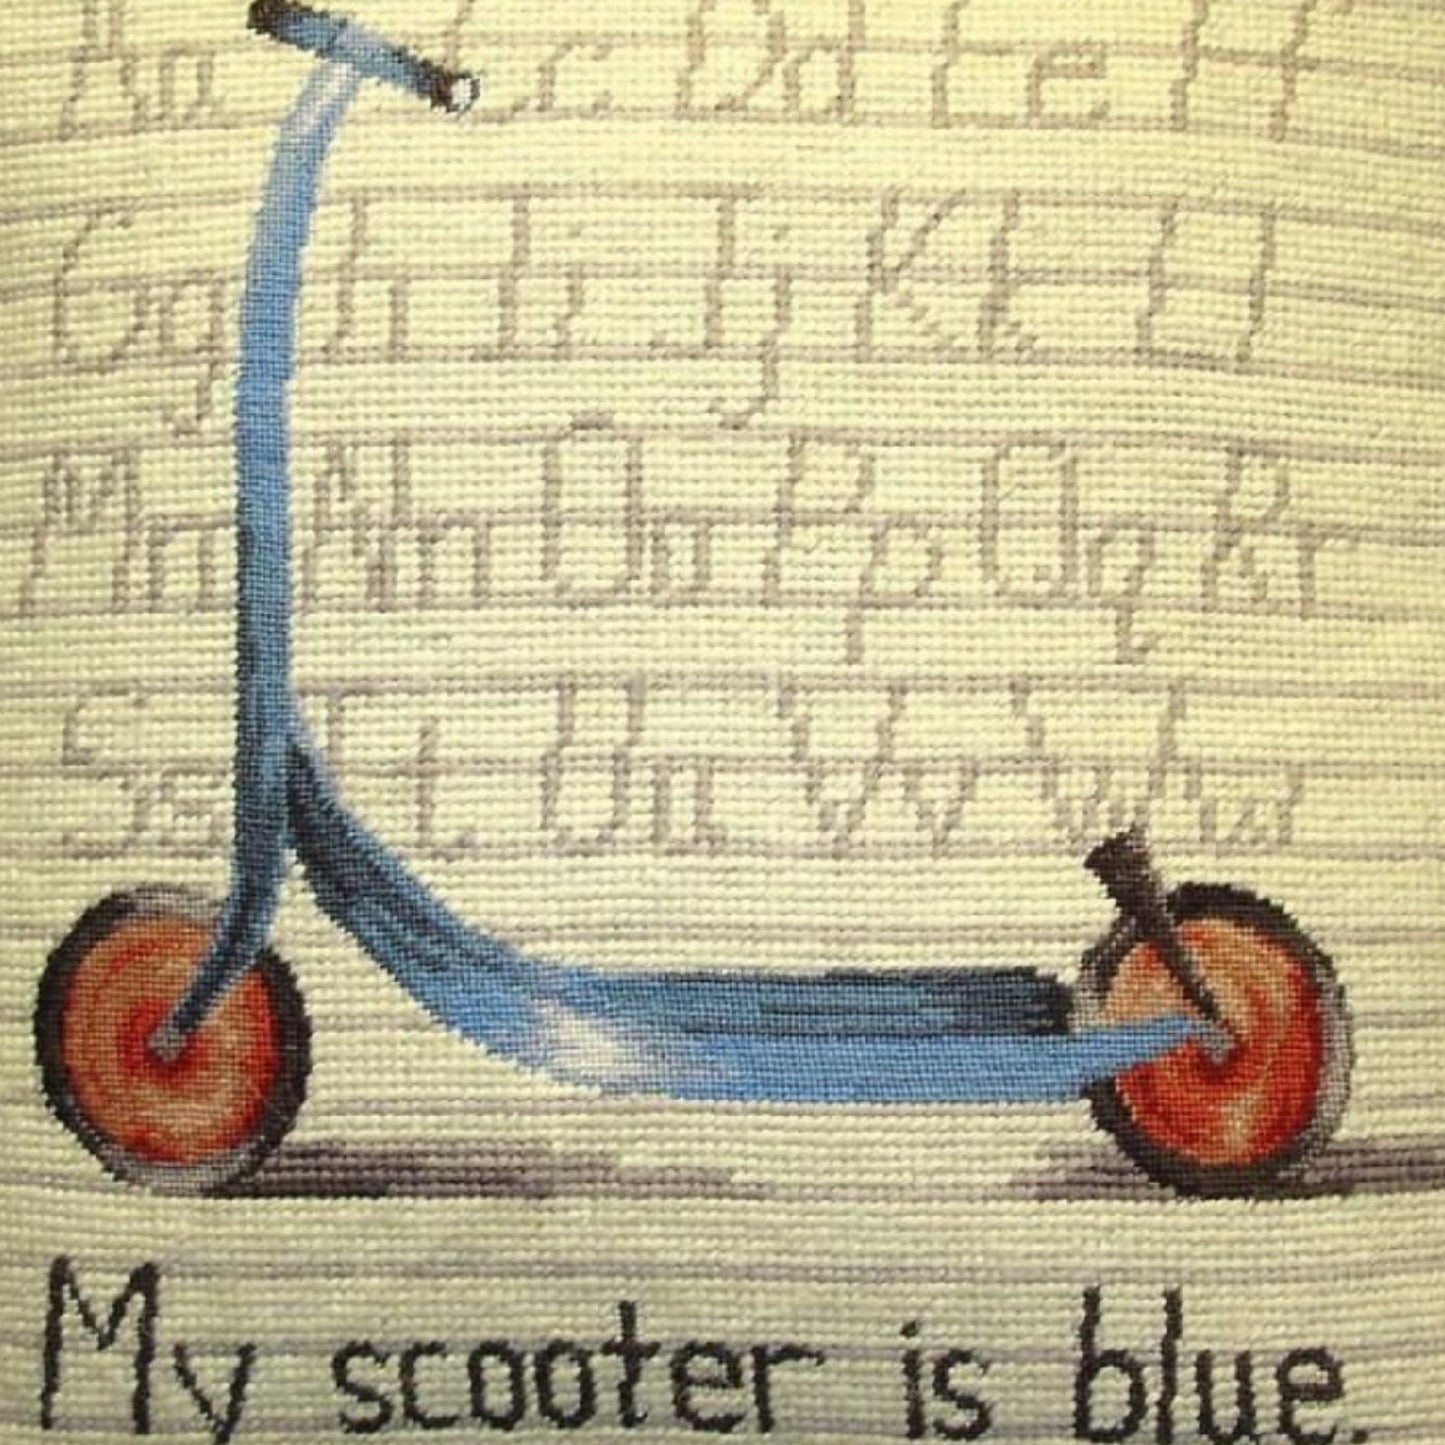 Aa Cc Dd Ee Ff
Gg h Ii Jj Kk Ll
Mm Nn Oo Pp Qq Rr
Ss Tt Uu Vv Ww
My scooter is blue.